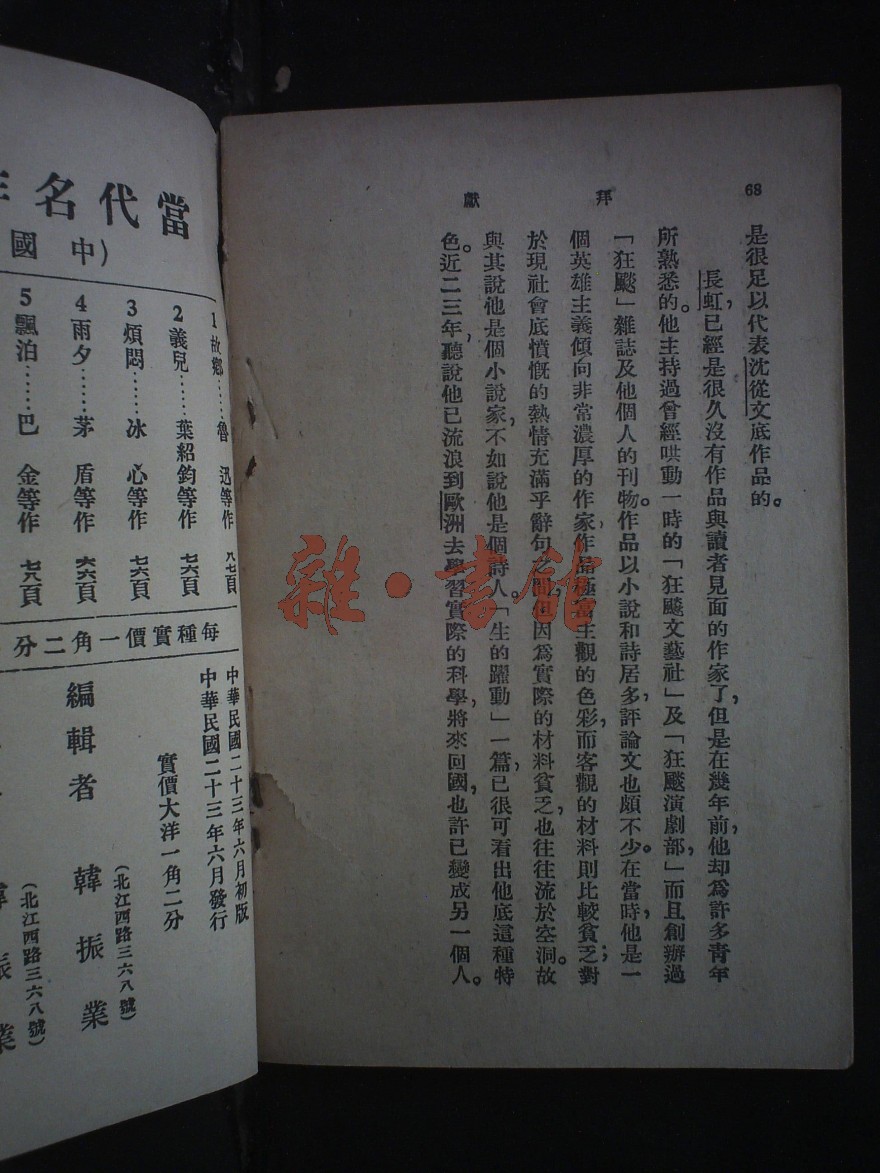 68
拜獻
是很足以代表沈從文底作品的。
長虹，已經是很久沒有作品與讀者見面的作家了，但是在幾年前，他却爲許多青年
所熟悉的。他主持過曾經哄動一時的「狂飇文藝社」及「狂飇演劇部，」而且創辦過
「狂飇」雜誌及他個人的刊物。作品以小說和詩居多，評論文也頗不少。在當時，他是一
個英雄主義傾向非常濃厚的作家，作品極富主觀的色彩，而客觀的材料則比較貧乏；對
於現社會底憤慨的熱情充滿乎辭句之間，但因爲實際的材料貧乏，也往往流於空洞。故
與其說他是個小說家，不如說他是個詩人。「生的躍動」一篇，已很可看出他底這種特
色。近二三年，聽說他已流浪到歐洲去學習實際的科學，將來回國，也許已變成另一個人。
當代名
（中國
1故鄉……魯迅等作 八七頁
2義兒……葉紹鈞等作 七六頁
3煩悶……冰心等作 七六頁
4雨夕……茅盾等作 六六頁
5飄泊……巴金等作 七八頁
每種實價一角二分
中華民國二十三年六月初版
中華民國二十三年六月發行
實價大洋一角二分
編輯者 韓振業
（北江西路三六八號）
韓振業
（北江西路三六八號）
雜·書館